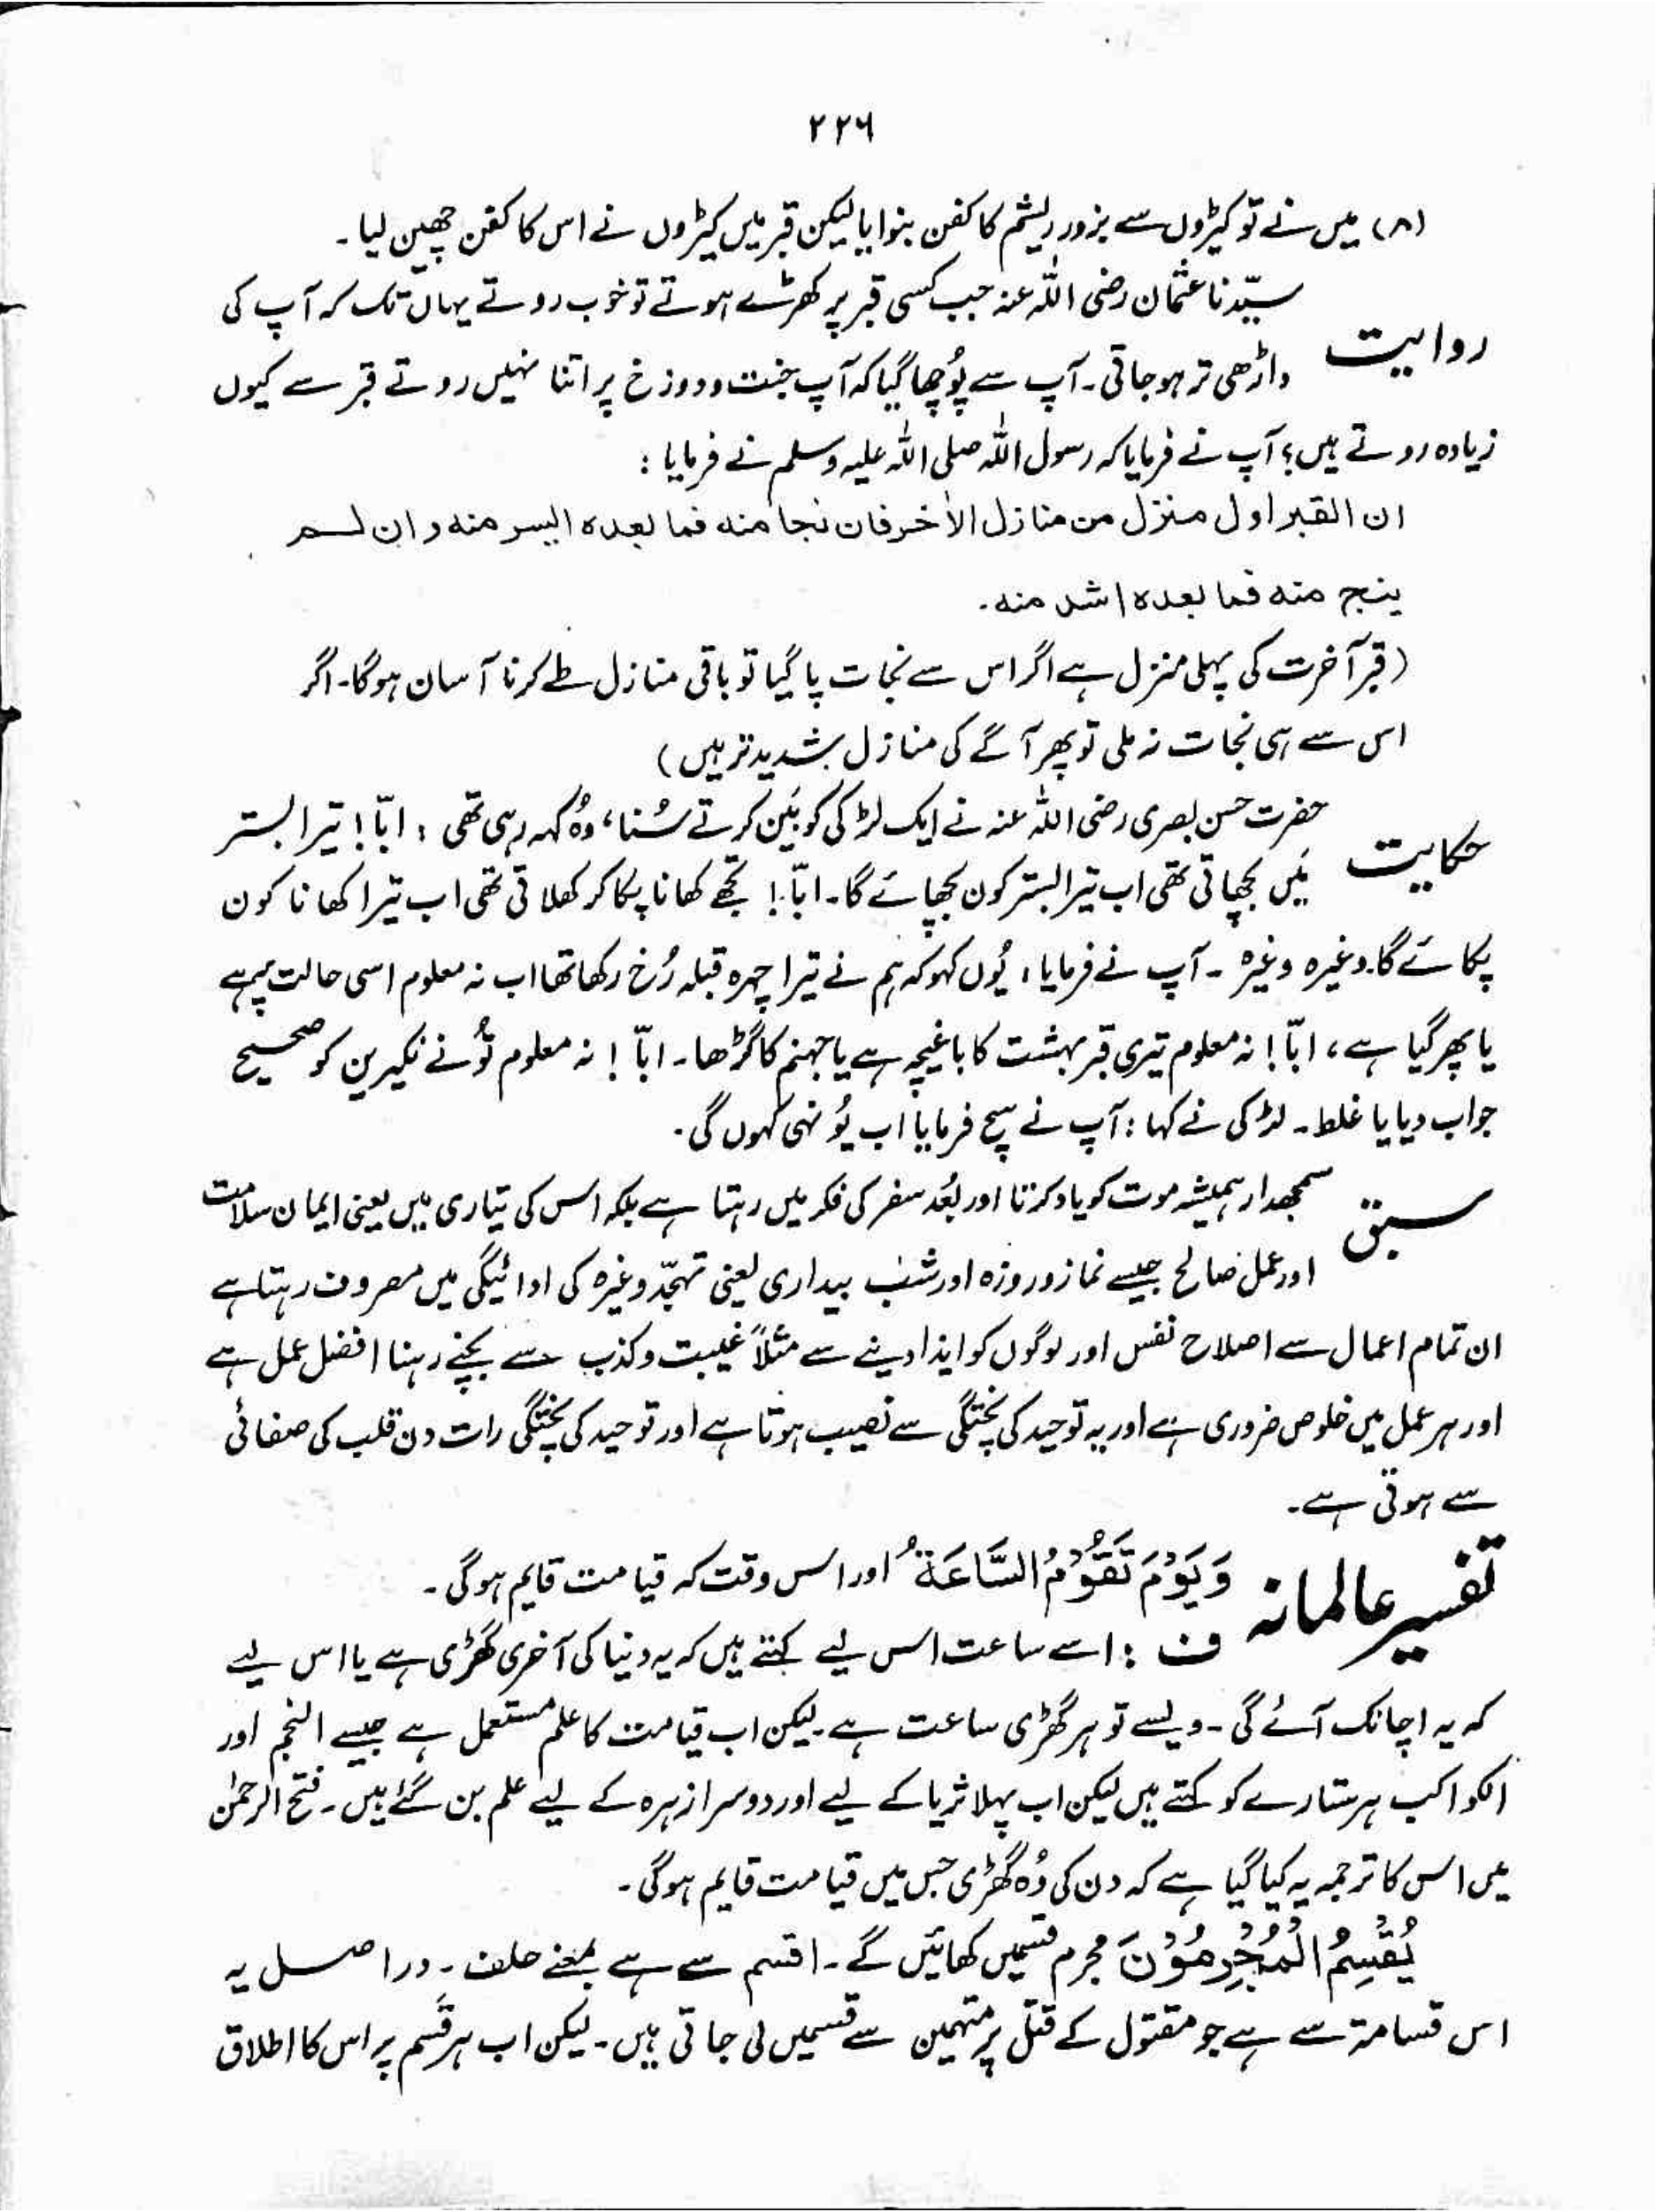 ۲۲۶
(۸) میں نے تو کیڑوں سے بزور ریشم کا کفن بنوایا لیکن قبر میں کیڑوں نے اس کا کفن چھین لیا۔
روایت سیّدنا عثمان رضی اللہ عنہ جب کسی قبر پر کھڑے ہوتے تو خوب روتے یہاں تک کہ آپ کی
داڑھی تر ہو جاتی۔ آپ سے پُوچھا گیا کہ آپ جنت و دوزخ پر اتنا نہیں روتے قبر سے کیوں
زیادہ روتے ہیں؟ آپ نے فرمایا کہ رسول اللہ صلی اللہ علیہ وسلم نے فرمایا :
ان القبر اول منزل من منازل الاٰخر فان نجا منہ فما بعدہ الیسر منہ و ان لم
ینج منہ فما بعدہ اشد منہ۔
(قبر آخرت کی پہلی منزل ہے اگر اس سے نجات پا گیا تو باقی منازل طے کرنا آسان ہوگا۔ اگر
اس سے ہی نجات نہ ملی تو پھر آگے کی منازل شدید تر ہیں)
حکایت حضرت حسن بصری رضی اللہ عنہ نے ایک لڑکی کو بَین کرتے سُنا، وُہ کہہ رہی تھی : ابّا! تیرا بستر
مَیں بچھاتی تھی اب تیرا بستر کون بچھائے گا۔ ابّا! تجھے کھانا پکا کر کھلاتی تھی اب تیرا کھانا کون
پکائے گا۔ وغیرہ وغیرہ ۔ آپ نے فرمایا، یُوں کہو کہ ہم نے تیرا چہرہ قبلہ رُخ رکھا تھا اب نہ معلوم اسی حالت پہ ہے
یا پھر گیا ہے، ابّا! نہ معلوم تیری قبر بہشت کا باغیچہ ہے یا جہنم کا گڑھا۔ ابّا ! نہ معلوم تُو نے نکیرین کو صحیح
جواب دیا یا غلط۔ لڑکی نے کہا : آپ نے سچ فرمایا اب یُونہی کہوں گی۔
سبق سمجھدار ہمیشہ موت کو یاد کرتا اور بُعد سفر کی فکر میں رہتا ہے بلکہ اس کی تیاری میں یعنی ایمان سلامت
اور عمل صالح جیسے نماز و روزہ اور شب بیداری یعنی تہجّد وغیرہ کی ادائیگی میں مصروف رہتا ہے
ان تمام اعمال سے اصلاح نفس اور لوگوں کو ایذا دینے سے مثلاً غیبت و کذب سے بچتے رہنا افضل عمل ہے
اور ہر عمل میں خلوص ضروری ہے اور یہ توحید کی پختگی سے نصیب ہوتا ہے اور توحید کی پختگی رات دن قلب کی صفائی
سے ہوتی ہے۔
تفسیر عالمانہ وَيَوْمَ تَقُوْمُ السَّاعَةُ اور اس وقت کہ قیامت قایم ہوگی۔
ف : اسے ساعت اس لیے کہتے ہیں کہ یہ دنیا کی آخری گھڑی ہے یا اس لیے
کہ یہ اچانک آئے گی۔ ویسے تو ہر گھڑی ساعت ہے۔ لیکن اب قیامت کا علم مستعمل ہے جیسے النجم اور
الکواکب ہر ستارے کو کہتے ہیں لیکن اب پہلا ثریا کے لیے اور دوسرا زہرہ کے لیے علم بن گئے ہیں۔ فتح الرحمٰن
میں اس کا ترجمہ یہ کیا گیا ہے کہ دن کی وُہ گھڑی جس میں قیامت قایم ہوگی۔
يُقْسِمُ الْمُجْرِمُوْنَ مجرم قسمیں کھائیں گے۔ اقسم سے ہے بمعنے حلف ۔ دراصل یہ
اس قسامۃ سے ہے جو مقتول کے قتل پر متہمین سے قسمیں لی جاتی ہیں۔ لیکن اب ہر قَسم پر اس کا اطلاق